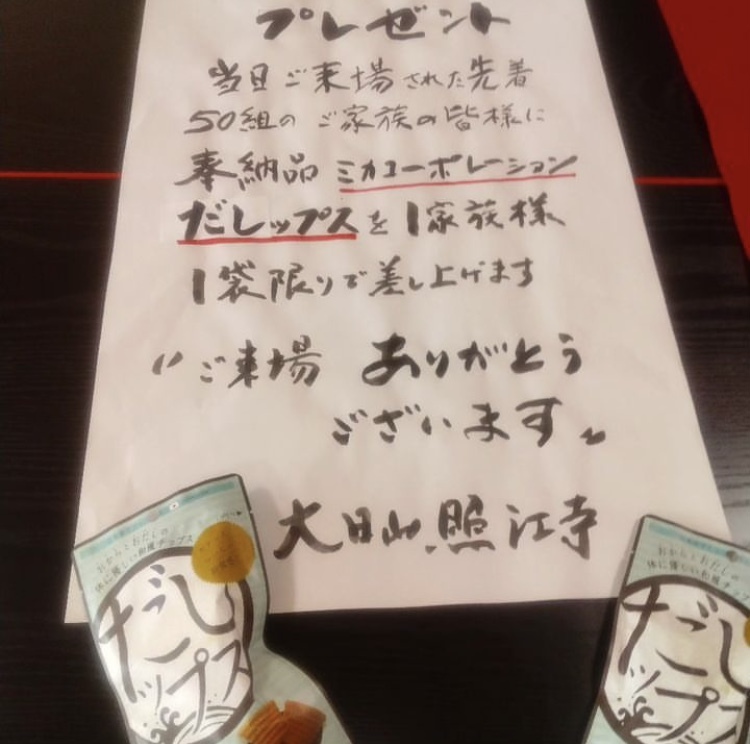 プレゼント
当日ご来場された先着
50組のご家族の皆様に
奉納品 ミカコーポレーション
だしップスを1家族様
1袋限りで差し上げます
"ご来場 ありがとう
ございます"
大日山 照江寺
おからとおだしの
体に優しい和風チップス
だし
ップス
おからとおだしの
体に優しい和風チップス
だし
ップス